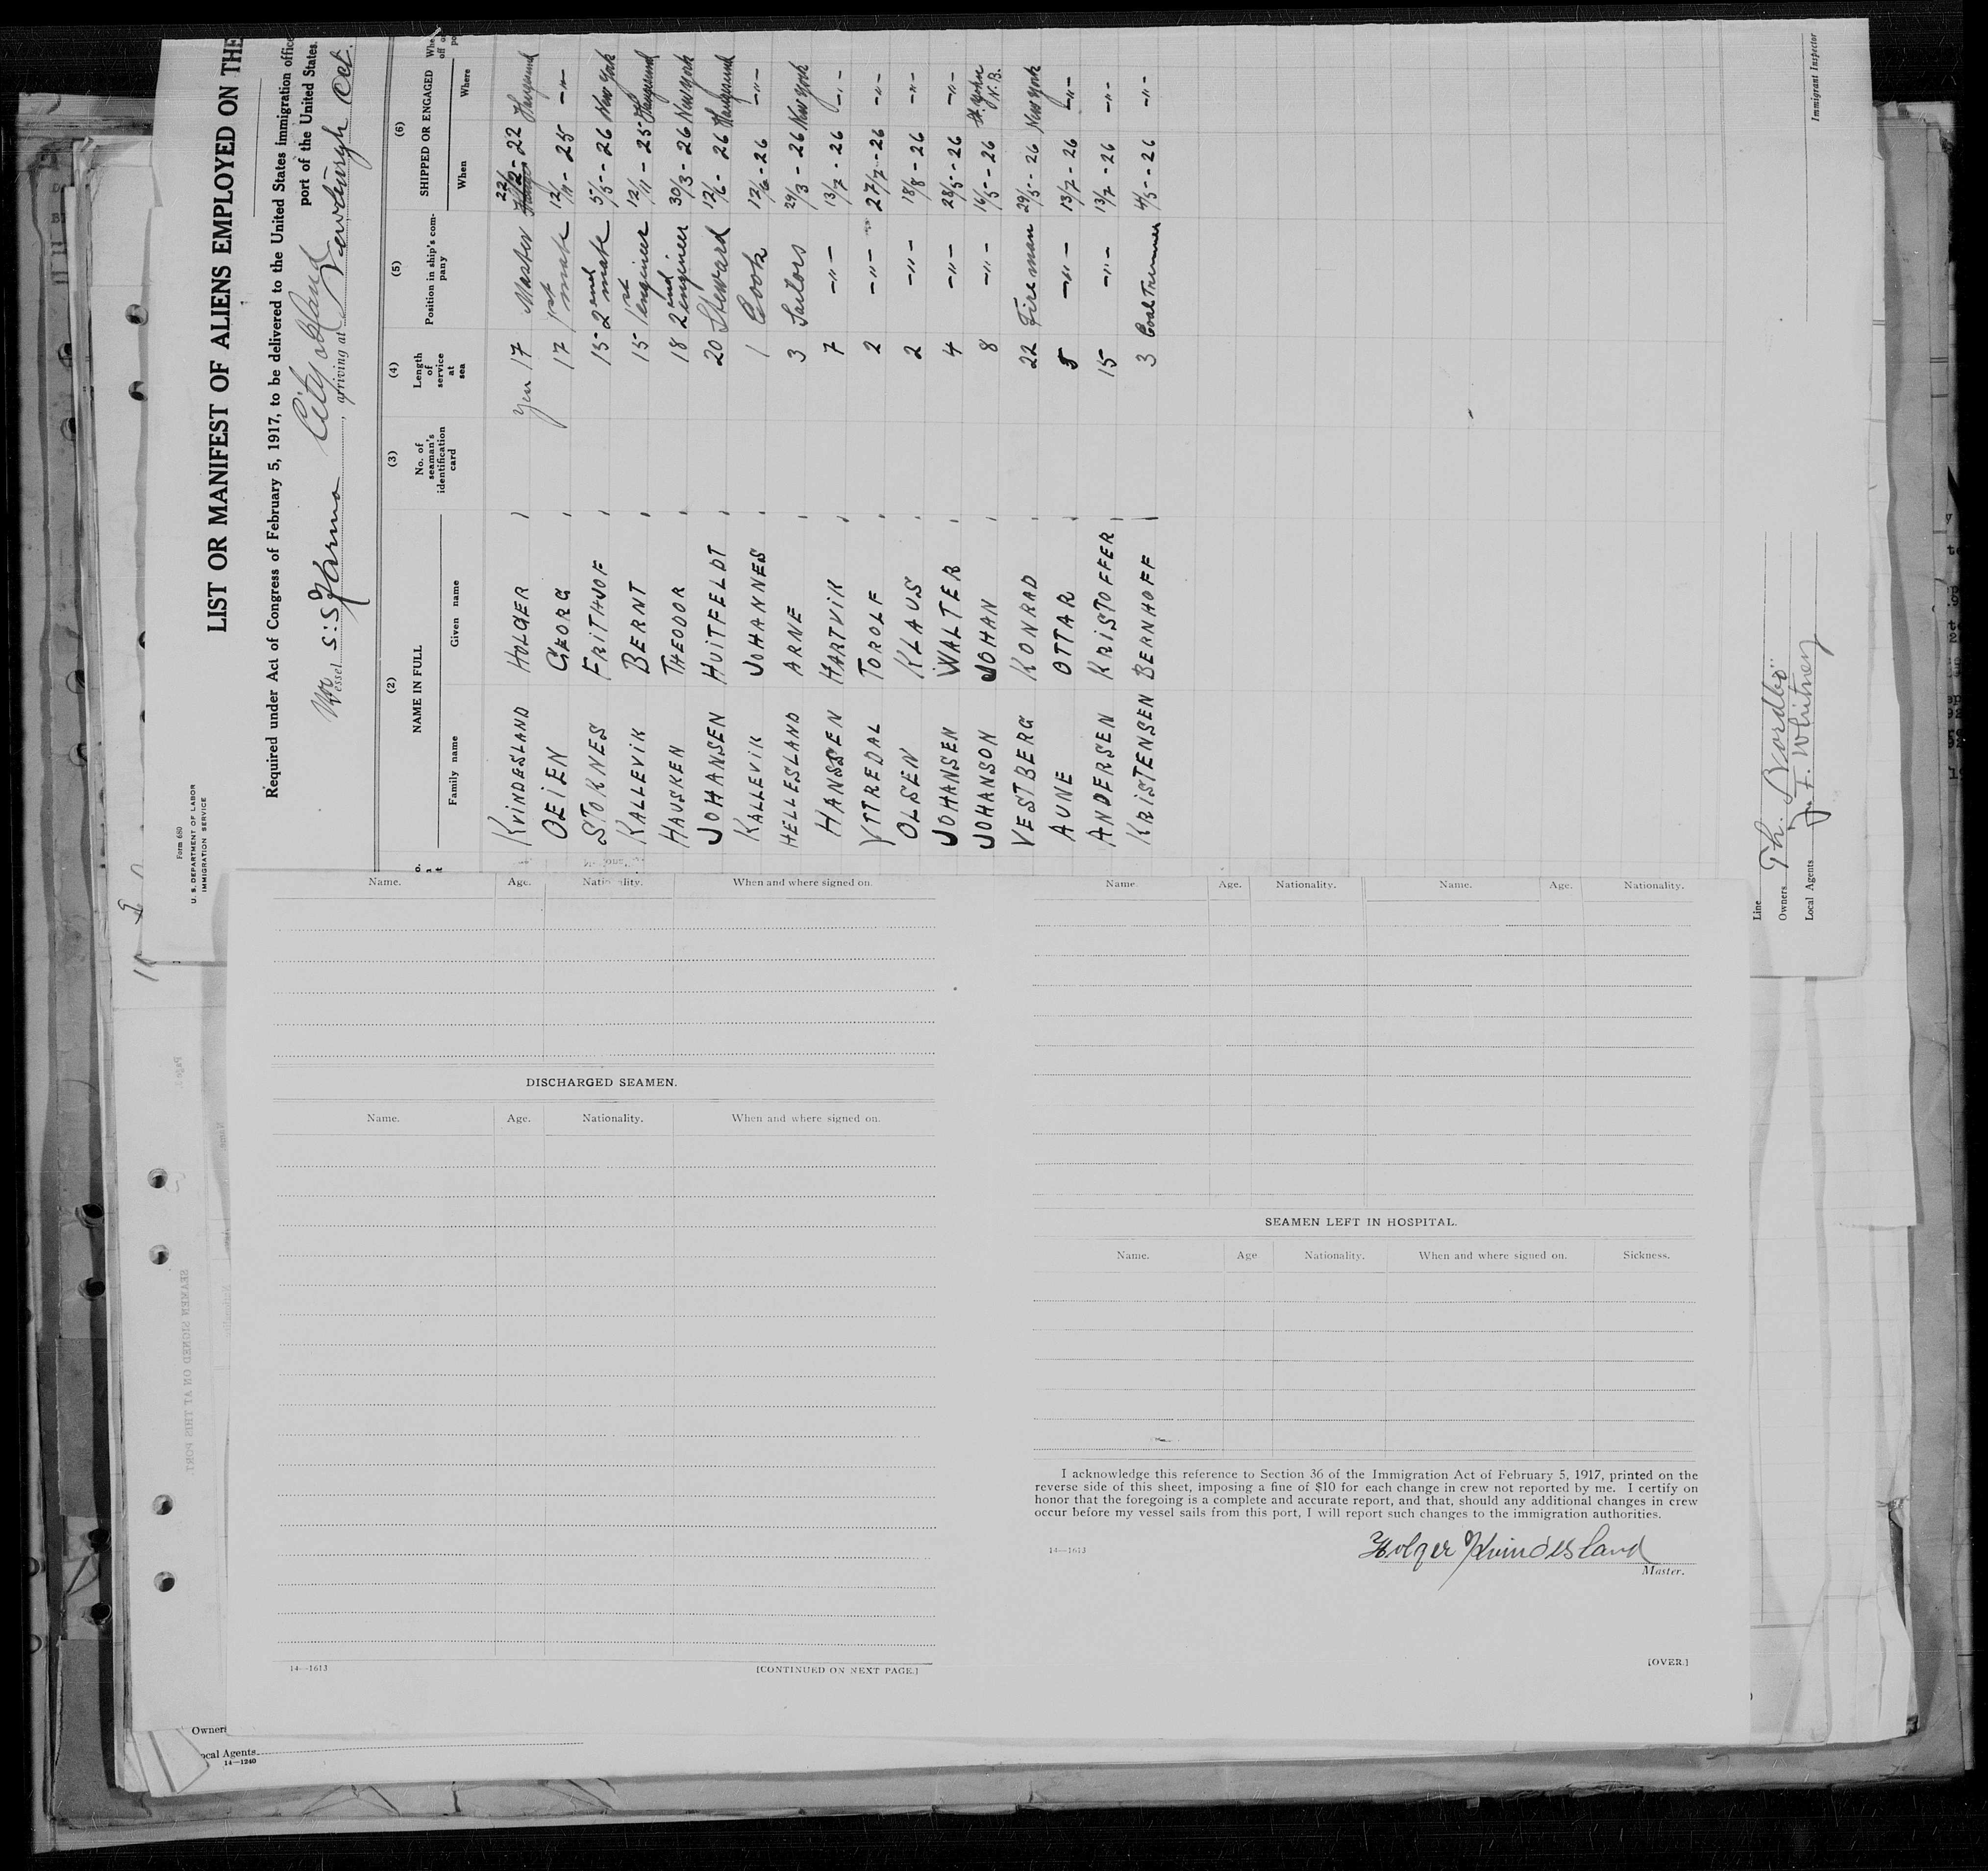 Form 680
U. S. DEPARTMENT OF LABOR
IMMIGRATION SERVICE
LIST OR MANIFEST OF ALIENS EMPLOYED ON THE
Required under Act of Congress of February 5, 1917, to be delivered to the United States immigration office
port of the United States.
Vessel S.S. arriving at Oct.
(2) (3) (4) (5) (6)
NAME IN FULL No. of seaman's identification card Length of service at sea Position in ship's company SHIPPED OR ENGAGED
Family name Given name When Where
KVINDESLAND HOLGER 17 Master 22/2 - 22 Haugesund
OEIEN GEORG 17 1st mate 12/11 - 25 -"-
STOKNES FRITHJOF 15 2nd mate 5/5 - 26 New York
KALLEVIK BERNT 15 1st engineer 12/11 - 25 Haugesund
HAUSKEN THEODOR 18 2nd engineer 30/3 - 26 New York
JOHANSEN HUITFELDT 20 Steward 12/6 - 26 Haugesund
KALLEVIK JOHANNES 1 Cook 12/6 - 26 -"-
HELLESLAND ARNE 3 Sailors 29/3 - 26 New York
HANSSEN HARTVIK 7 -"- 13/7 - 26 -"-
YTTREDAL TOROLF 2 -"- 27/7 - 26 -"-
OLSEN KLAUS 2 -"- 18/8 - 26 -"-
JOHANSEN WALTER 4 -"- 28/5 - 26 -"-
JOHANSON JOHAN 8 -"- 16/5 - 26 St. John N.B.
VESTBERG KONRAD 22 Fireman 29/5 - 26 New York
AUNE OTTAR 5 -"- 13/7 - 26 -"-
ANDERSEN KRISTOFFER 15 -"- 13/7 - 26 -"-
KRISTENSEN BERNHOFF 3 Coal Trimmer 4/5 - 26 -"-
Line
Owners Th. Bordbö
Local Agents J. F. Whitney
Immigrant Inspector
Name. Age. Nationality. When and where signed on.
DISCHARGED SEAMEN.
Name. Age. Nationality. When and where signed on.
14—1613
[CONTINUED ON NEXT PAGE.]
Name Age. Nationality. Name. Age. Nationality.
SEAMEN LEFT IN HOSPITAL.
Name. Age Nationality. When and where signed on. Sickness.
I acknowledge this reference to Section 36 of the Immigration Act of February 5, 1917, printed on the
reverse side of this sheet, imposing a fine of $10 for each change in crew not reported by me. I certify on
honor that the foregoing is a complete and accurate report, and that, should any additional changes in crew
occur before my vessel sails from this port, I will report such changes to the immigration authorities.
14—1613
Holger Kvindesland
Master.
[OVER.]
Owners
ocal Agents
14—1240
SEAMEN SIGNED ON AT THIS PORT